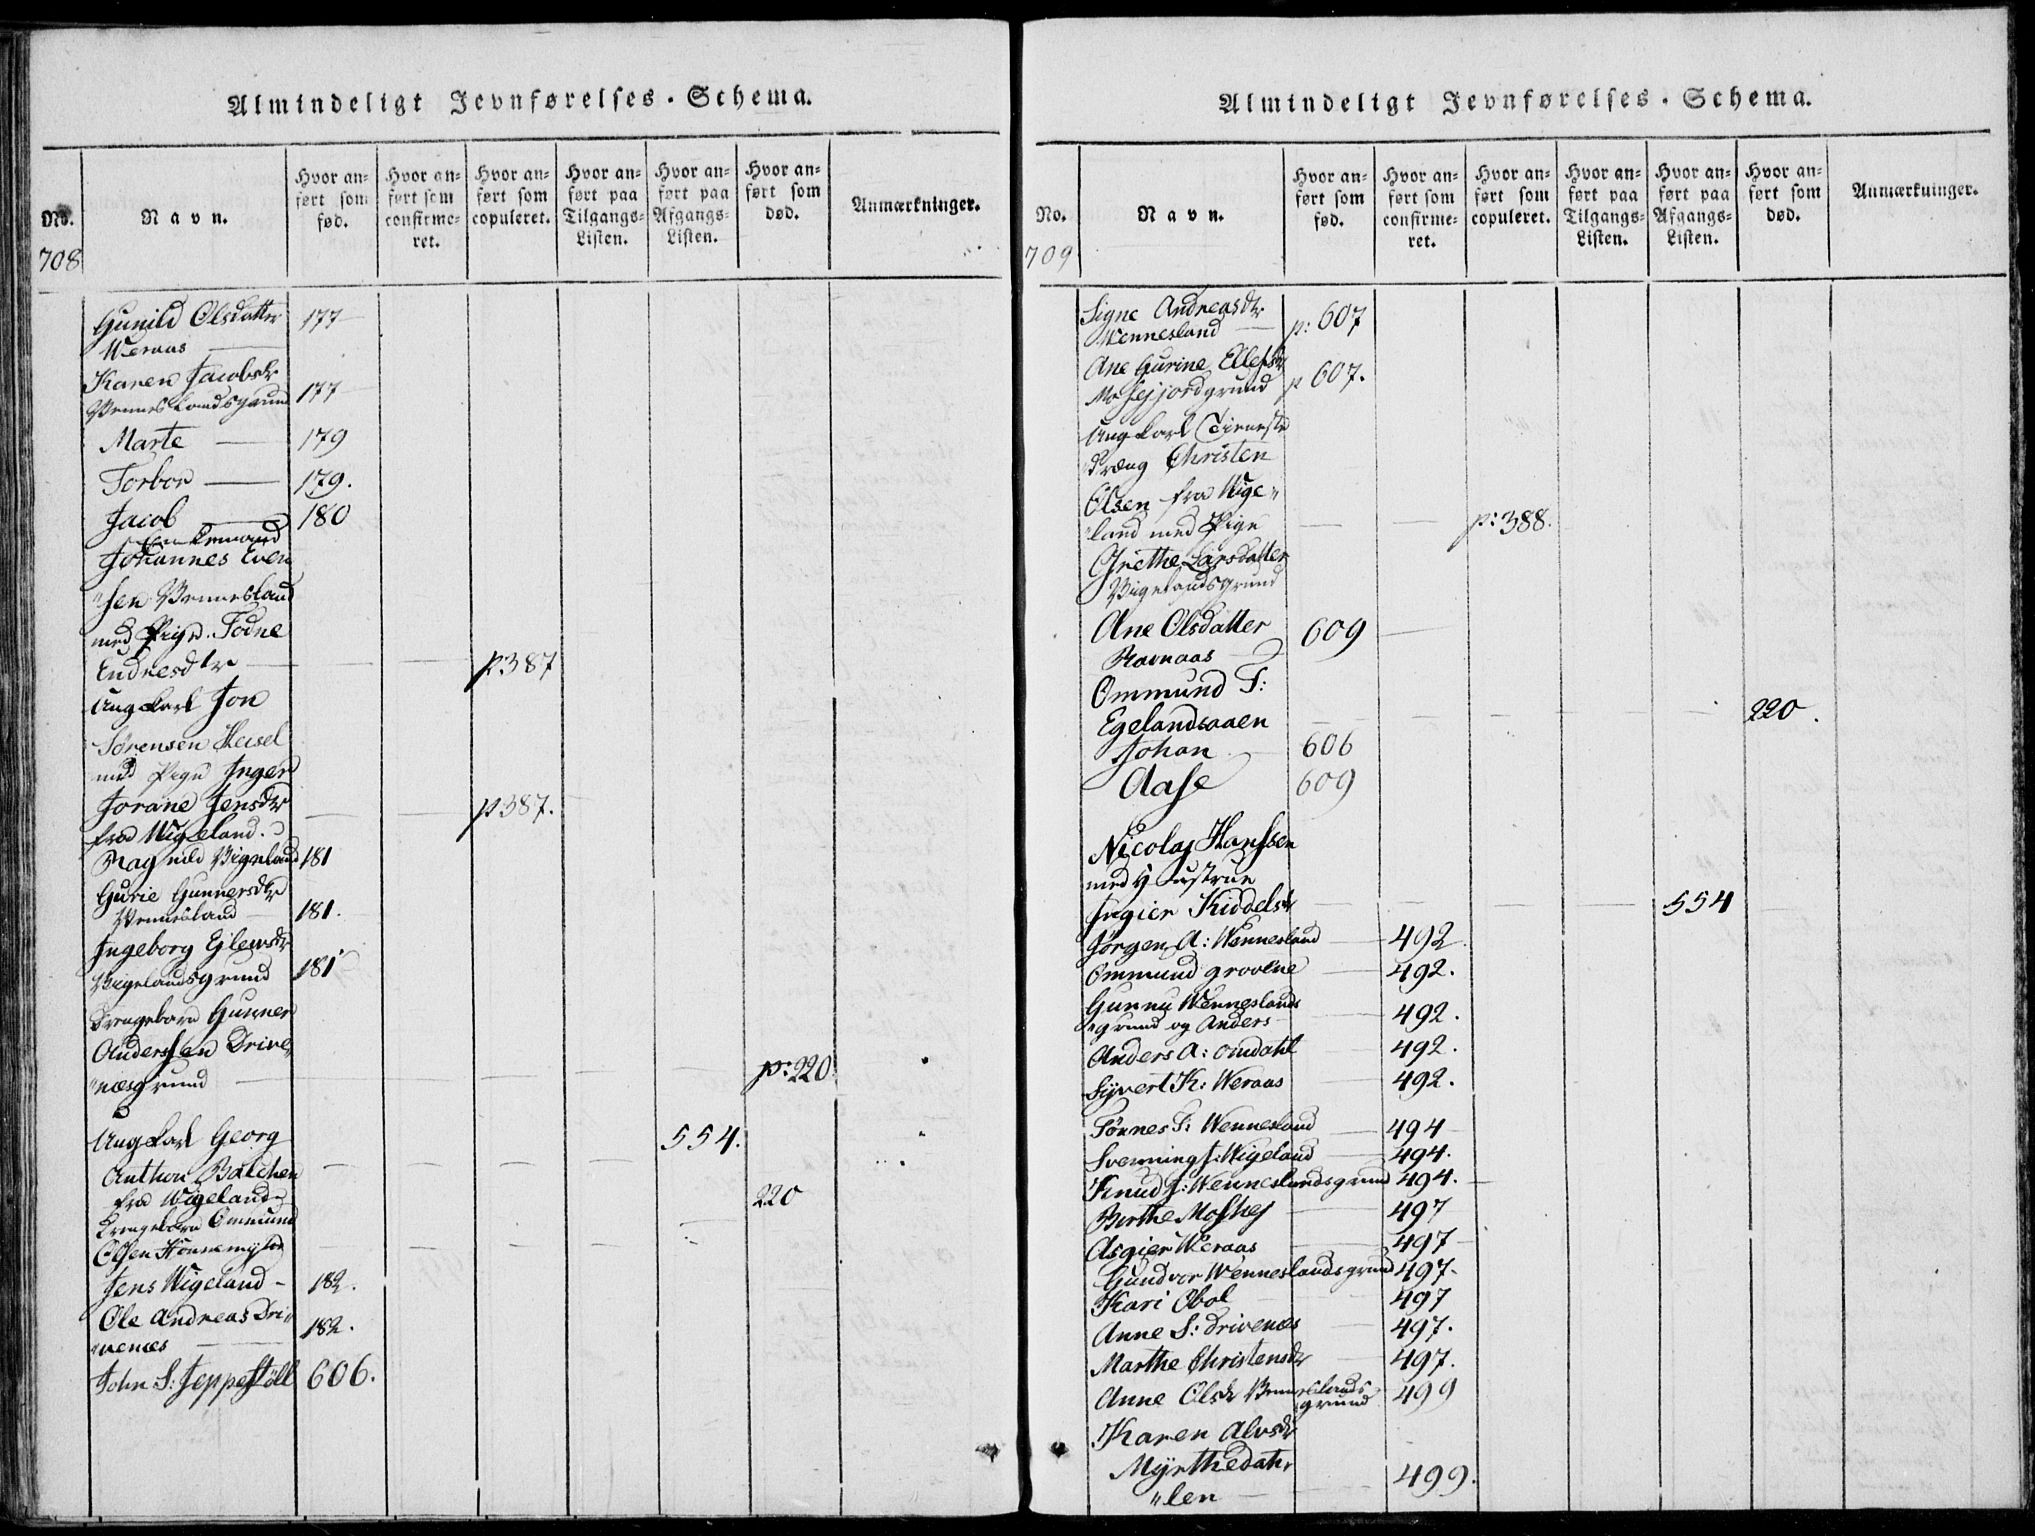 Almindeligt Jevnførelses-Schema.
No.
Navn.
Hvor an-
ført som
fød.
Hvor an-
ført som
confirme-
ret.
Hvor an-
ført som
copuleret.
Hvor an-
ført paa
Tilgangs-
Listen.
Hvor an-
ført paa
Afgangs-
Listen.
Hvor an-
ført som
død.
Anmærkninger.
708
Gunild Olsdatter 177
Weraas
Karen Jacobsdr
Wenneslandsgrund 177
Marte 179
Torbor 179.
Jacob 180
Enkemand
Johannes Even
"sen Wennesland
med Pige Todne
Endresdtr p.387
Ungkarl Jon
Sørensen Heisel
med Pige Inger
Jorane Jensdtr p387.
fra Wigeland.
Ragnild Vigeland 181
Gurie Gunnersdtr
Wennesland 181.
Ingeborg Ejlewsdr
Vigelandsgrund 181
Drengebarn Gunner
Anderssen Drive
"næsgrund p:220.
Ungkarl Georg 554.
Anthon Balchen
fra Wigeland
Drengebarn Ommund 220
Olsen Honnemyhr
Jens Wigeland - 182.
Ole Andreas Dri"
"venæs 182.
John S: Jeppestøll 606.
Almindeligt Jevnførelses-Schema.
No.
Navn.
Hvor an-
ført som
fød.
Hvor an-
ført som
confirme-
ret.
Hvor an-
ført som
copuleret.
Hvor an-
ført paa
Tilgangs-
Listen.
Hvor an-
ført paa
Afgangs-
Listen.
Hvor an-
ført som
død.
Anmærkninger.
709
Signe Andreasdtr
Wennesland p: 607
Ane Gurine Ellefsdr
Mosejjordgrund p 607.
Ungkarl Tieneste
dreng Christen
Olsen fra Wige"
"land med Pige p:388.
Grethe Larsdatter
Vigelandsgrund
Ane Olsdatter 609
Ravnaas
Ommund T:
Egelandsaaen 220.
Johan 606
Aase 609
Nicolaj Hanssen
med Hustrue
Ingier Kiddelsdr 554
Jørgen A: Wennesland 492.
Ommund grovene 492.
Gunnu Wenneslands
"grund og Anders 492.
Anders A: Omdahl 492.
Syvert K: Weraas 492.
Tønnes T: Wennesland 494
Svenning J: Wigeland 494.
Knud J: Wenneslandsgrund 494.
Berthe Moshej 497
Asgier Weraas 497
Gundvor Wenneslandsgrund 497.
Kari Obol 497
Anne S: Drivenæs 497.
Marthe Christensdr 497.
Anne Olsdr Wenneslands
grund 499
Karen Alvsdr
Myrthedah
"len 499.